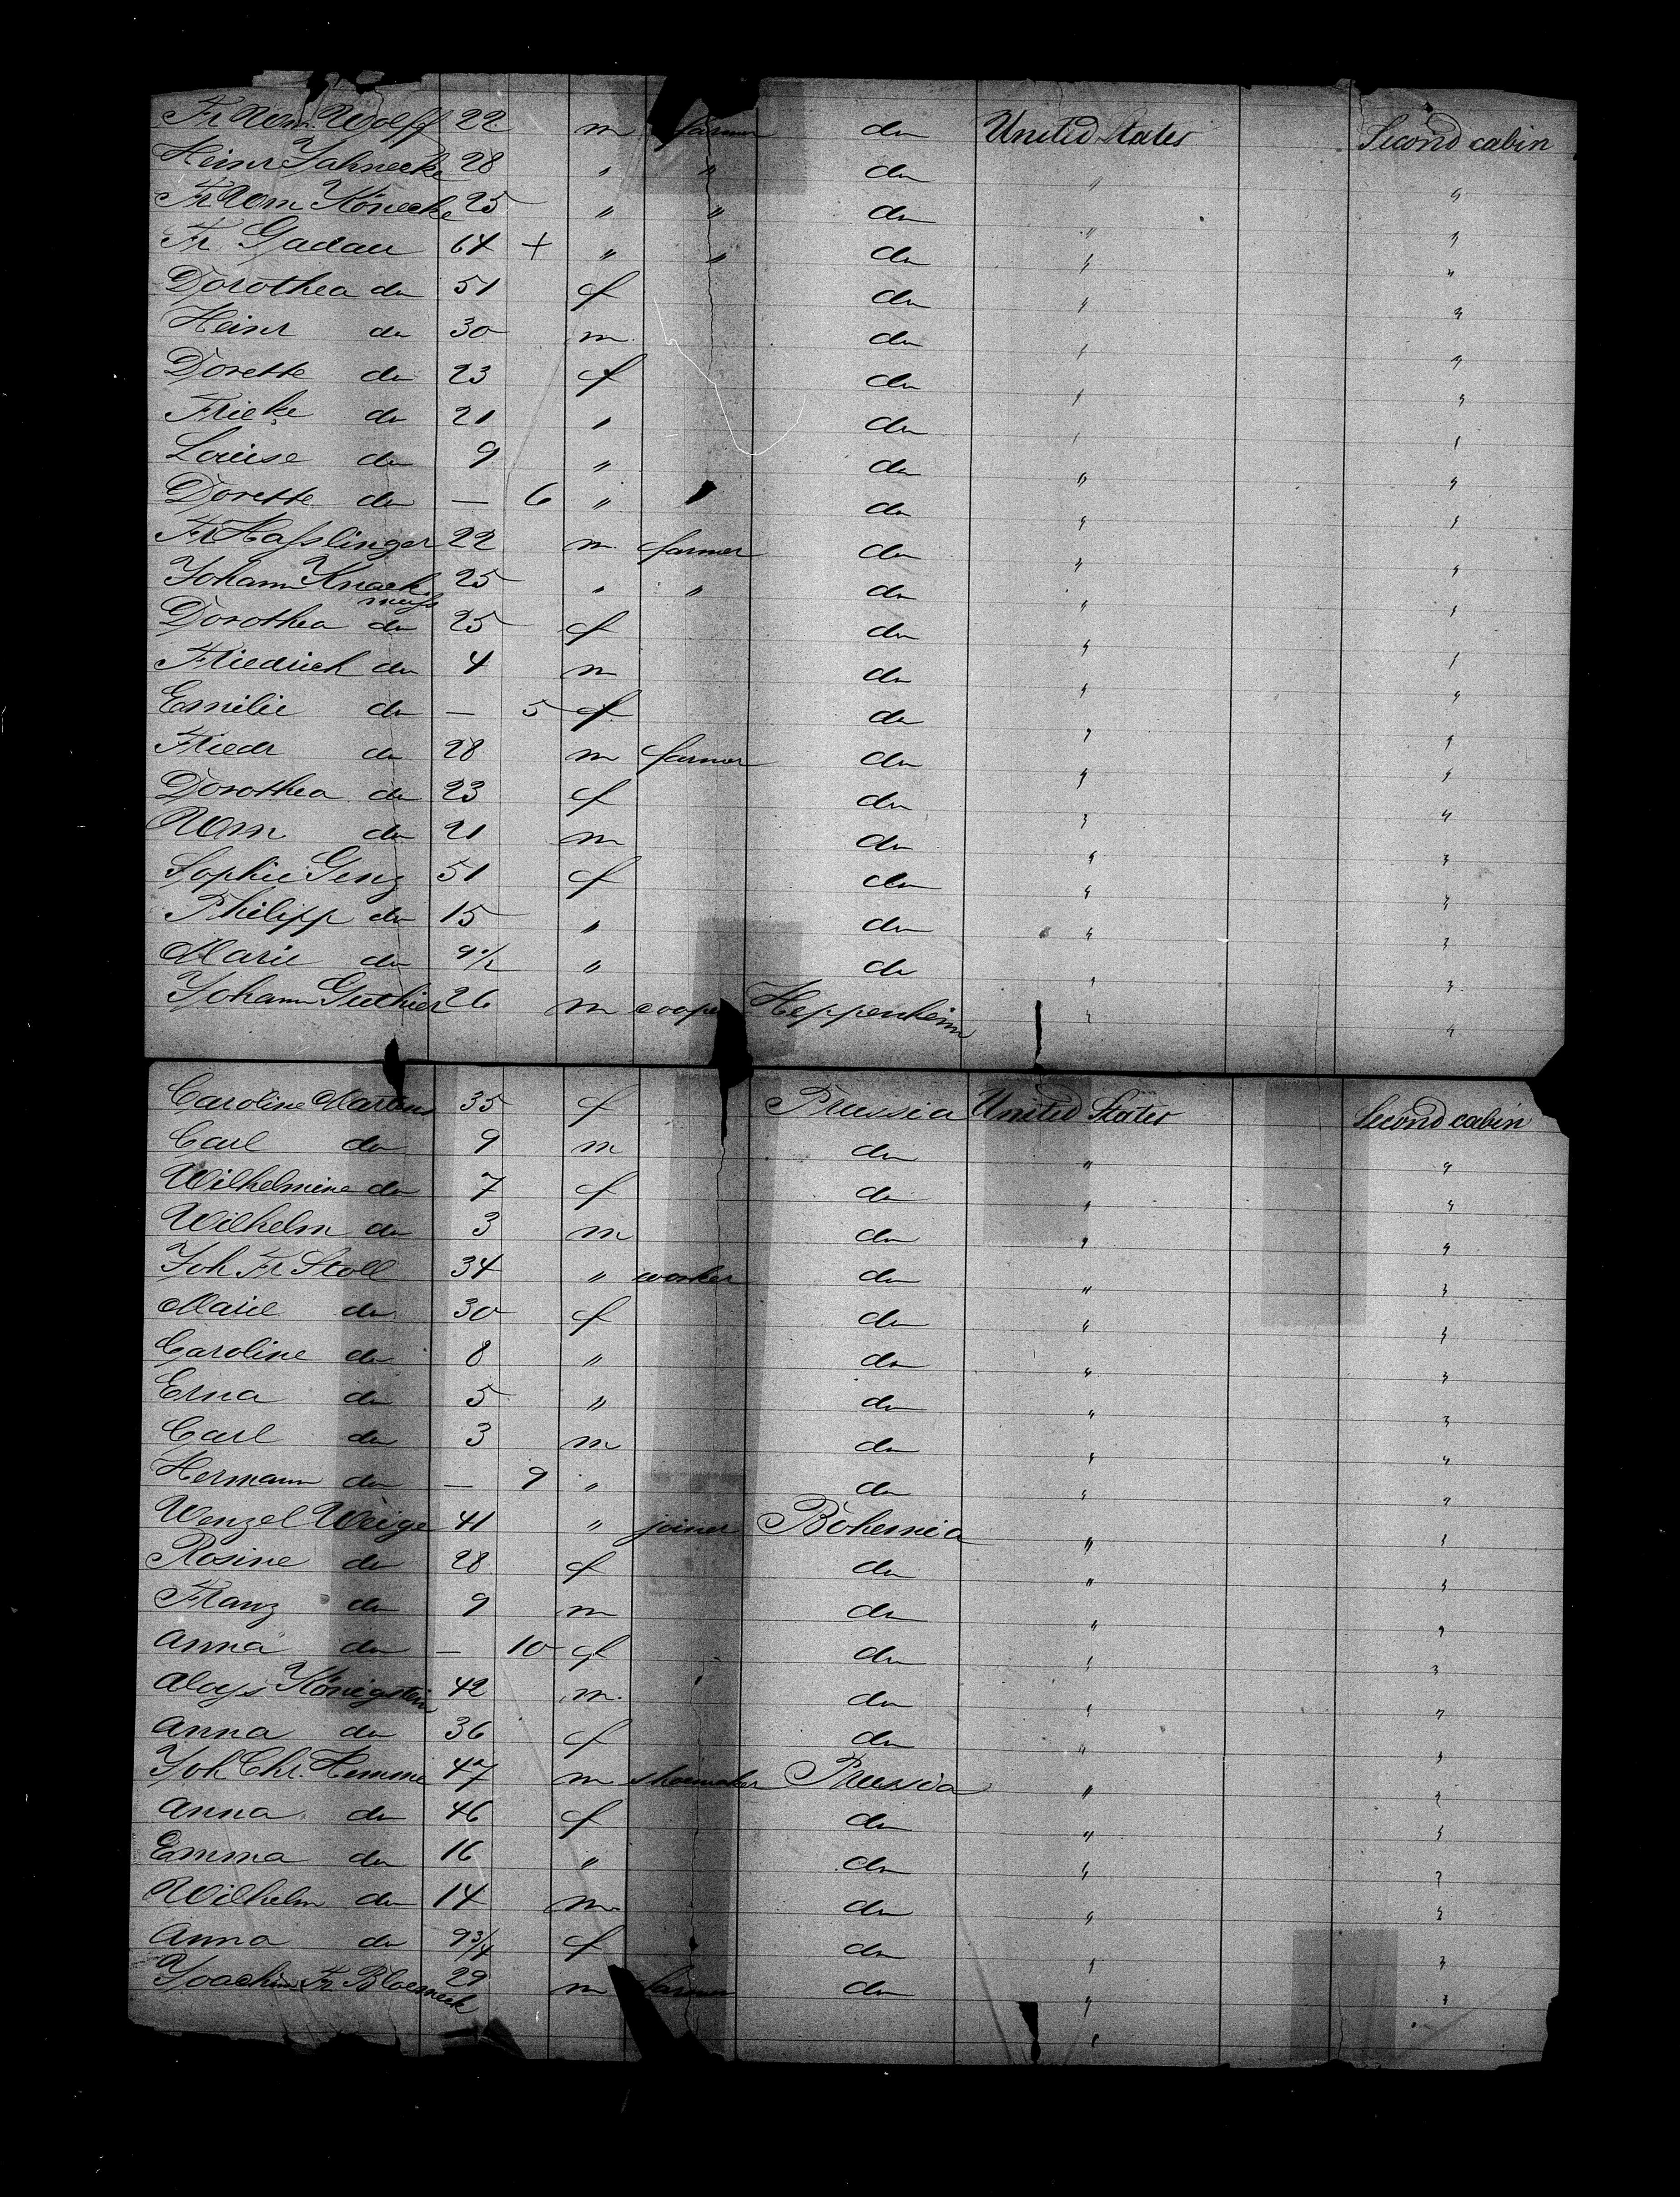 Fr Wm. Wolff 22 m farmer do United States Second cabin
Heinr Jahnecke 28 " " do " "
Fr Wm Könecke 25 " " do " "
Fr. Gadau 64 + " " do " "
Dorothea do 51 f do " "
Heinr do 30 m. do " "
Dorette do 23 f do " "
Frieke do 21 " do " "
Louise do 9 " do " "
Dorette do — 6 " " do " "
Fr Hasslinger 22 m. farmer do " "
Johann Knack 25 " " do " "
muss
Dorothea do 25 f do " "
Friedrich do 4 m do " "
Emilie do — 5 f. do " "
Friedr do 28 m farmer do " "
Dorothea do 23 f do " "
Wm do 21 m do " "
Sophie Genz 51 f do " "
Philipp do 15 " do " "
Marie do 9 1/2 " do " "
Johann Guthier 26 m cooper Heppenheim " "
Caroline Martens 35 f Prussia United States Second cabin
Carl do 9 m do " "
Wilhelmine do 7 f do " "
Wilhelm do 3 m do " "
Joh Fr Stoll 34 " worker do " "
Marie do 30 f do " "
Caroline do 8 " do " "
Erna do 5 " do " "
Carl do 3 m do " "
Hermann do — 9 " do " "
Wenzel Weige 41 " joiner Bohemia " "
Rosine do 28 f do " "
Franz do 9 m do " "
Anna do — 10 f do " "
Aloys Königstein 42 m. do " "
Anna do 36 f do " "
Joh Chr. Hemme 47 m shoemaker Prussia " "
Anna do 46 f do " "
Emma do 16 " do " "
Wilhelm do 14 m do " "
Anna do 9 3/4 f do " "
Joachim Fr 29 m farmer do " "